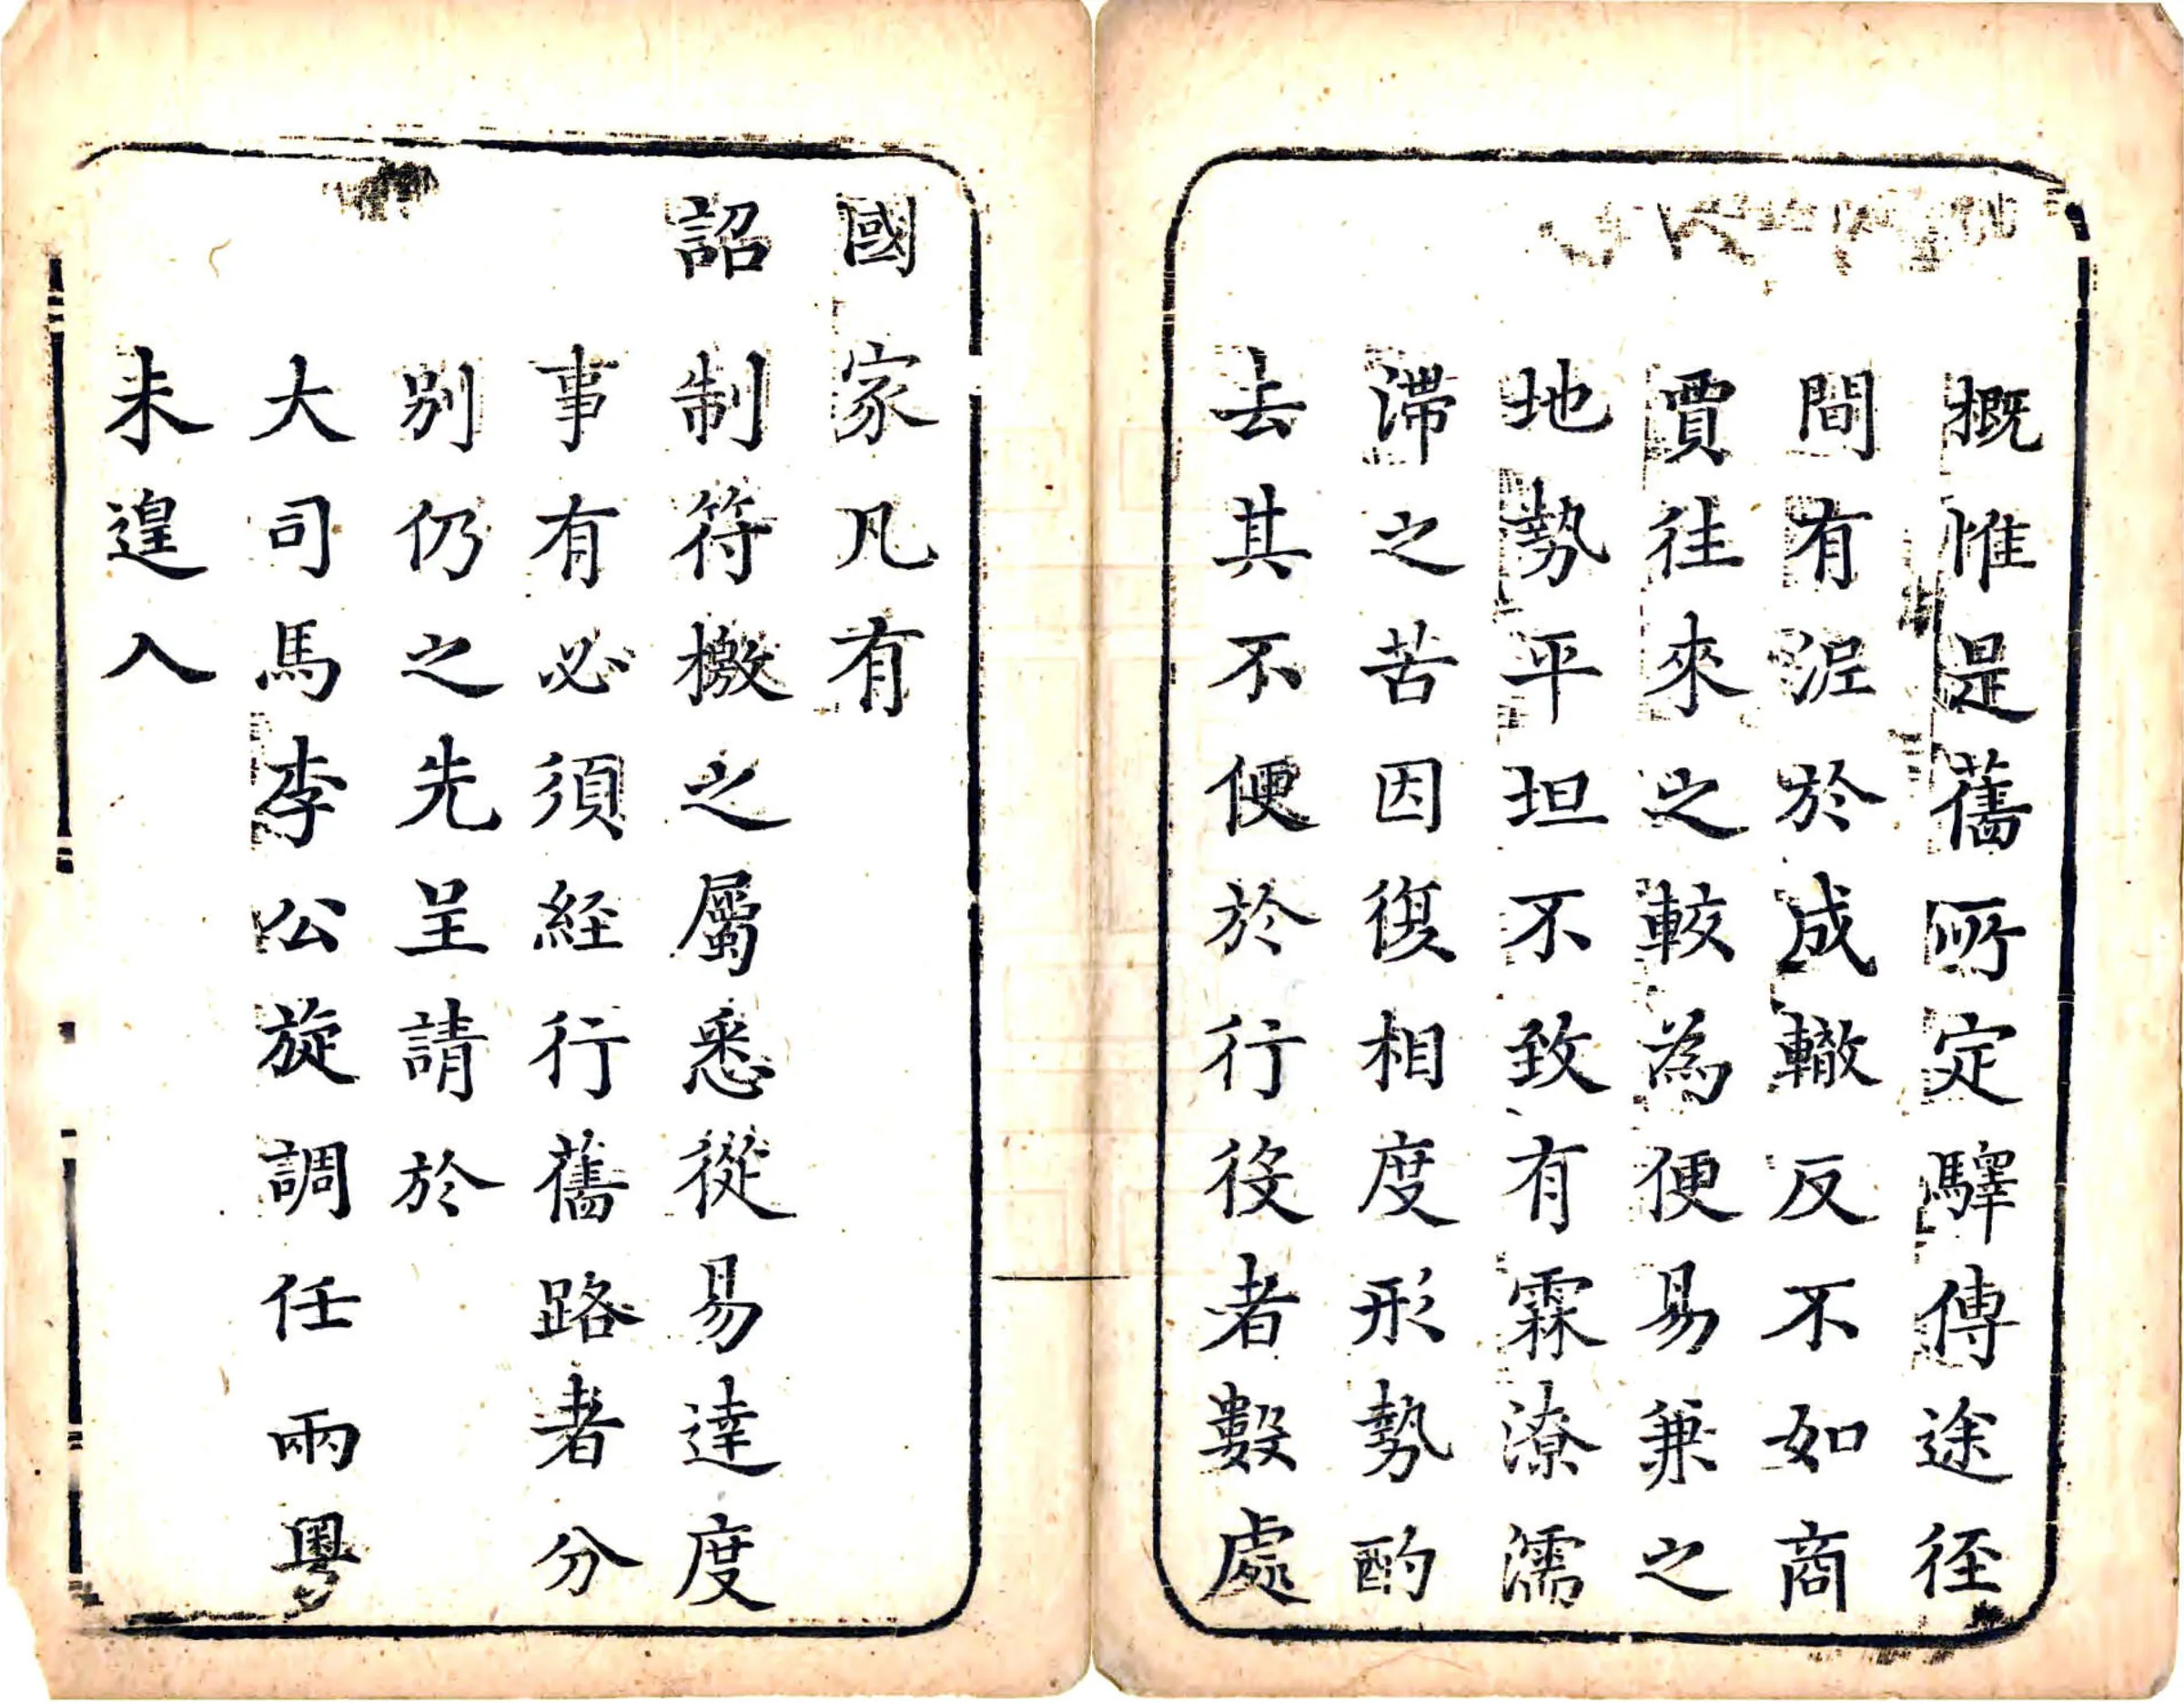 概惟是舊所定驛傳途徑
間有泥於成轍反不如商
賈徃來之較為便易兼之
地勢平坦不致有霖潦濡
滯之苦因復相度形勢酌
去其不便於行役者數處
國家凡有
詔制符檄之屬悉從易達度
事有必須經行舊路者分
別仍之先呈請於
大司馬李公旋調任兩粵
未遑入